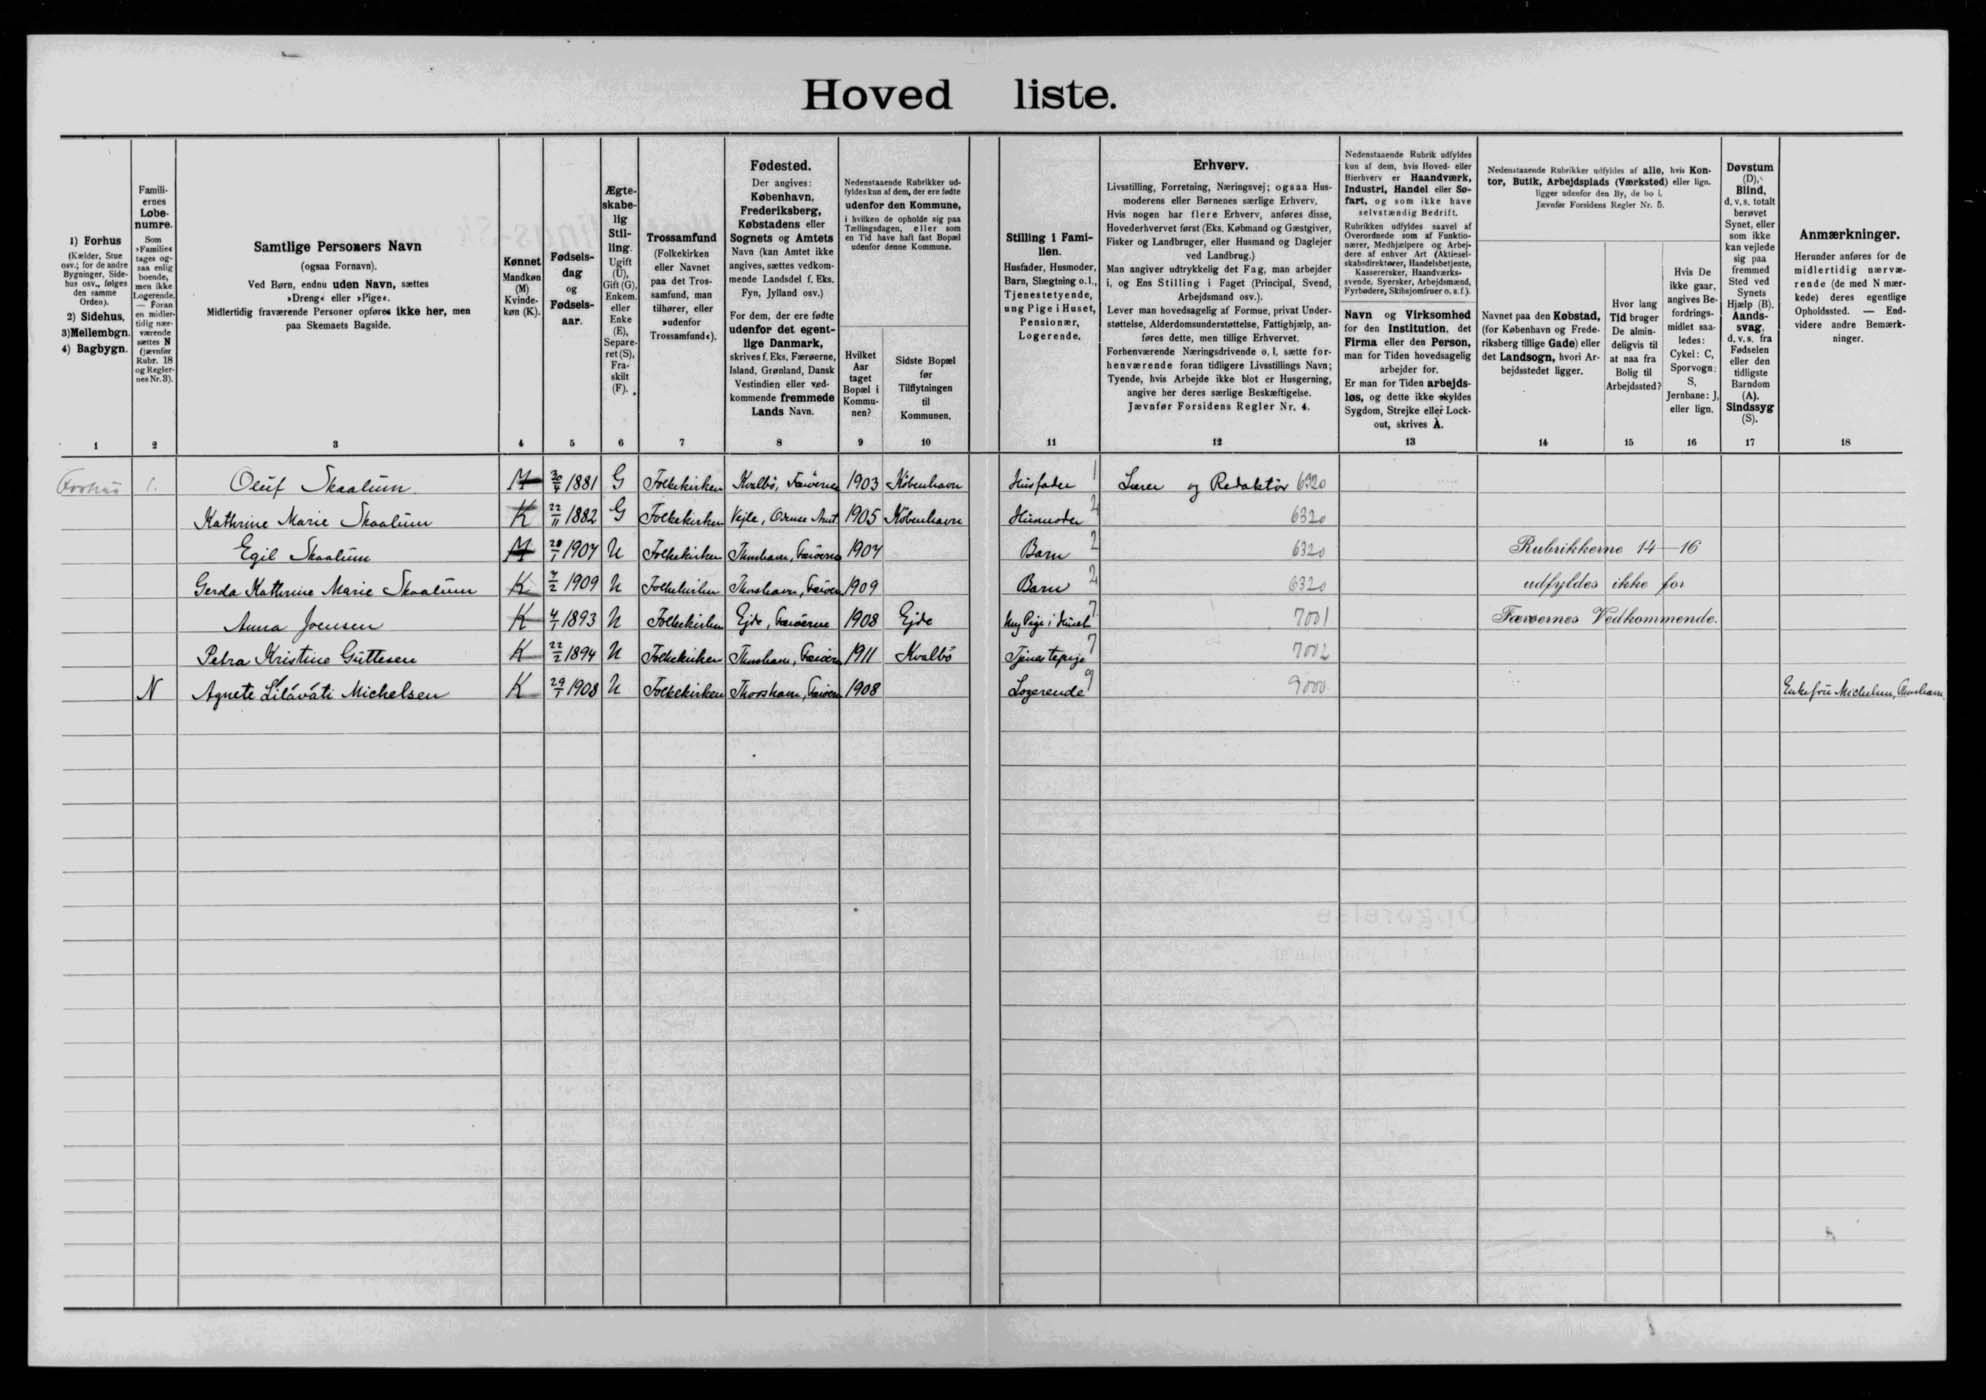 Hoved liste.
1) Forhus
(Kælder, Stue
osv.; for de andre
Bygninger, Side-
hus osv., følges
den samme
Orden).
2) Sidehus,
3) Mellembgn.
4) Bagbygn.
1
Famili-
ernes
Løbe-
numre.
Som
»Familie«
tages og-
saa enlig
boende,
men ikke
Logerende.
— Foran
en midler-
tidig nær-
værende
sættes N
(jævnfør
Rubr. 18
og Regler-
nes Nr. 3).
2
Samtlige Personers Navn
(ogsaa Fornavn).
Ved Børn, endnu uden Navn, sættes
»Dreng« eller »Pige«.
Midlertidig fraværende Personer opføres ikke her, men
paa Skemaets Bagside.
3
Kønnet
Mandkøn
(M)
Kvinde-
køn (K).
4
Fødsels-
dag
og
Fødsels-
aar.
5
Ægte-
skabe-
lig
Stil-
ling.
Ugift
(U),
Gift (G),
Enkem.
eller
Enke
(E),
Separe-
ret (S),
Fra-
skilt
(F).
6
Trossamfund
(Folkekirken
eller Navnet
paa det Tros-
samfund, man
tilhører, eller
»udenfor
Trossamfund«).
7
Fødested.
Der angives:
København,
Frederiksberg,
Købstadens eller
Sognets og Amtets
Navn (kan Amtet ikke
angives, sættes vedkom-
mende Landsdel f. Eks.
Fyn, Jylland osv.)
For dem, der ere fødte
udenfor det egent-
lige Danmark,
skrives f. Eks. Færøerne,
Island, Grønland, Dansk
Vestindien eller ved-
kommende fremmede
Lands Navn.
8
Nedenstaaende Rubrikker ud-
fyldes kun af dem, der ere fødte
udenfor den Kommune,
i hvilken de opholde sig paa
Tællingsdagen, eller som
en Tid have haft fast Bopæl
udenfor denne Kommune.
Hvilket
Aar
taget
Bopæl i
Kommu-
nen?
9
Sidste Bopæl
før
Tilflytningen
til
Kommunen.
10
Stilling i Fami-
lien.
Husfader, Husmoder,
Barn, Slægtning o.l.,
Tjenestetyende,
ung Pige i Huset,
Pensionær,
Logerende.
11
Erhverv.
Livsstilling, Forretning, Næringsvej; ogsaa Hus-
moderens eller Børnenes særlige Erhverv.
Hvis nogen har flere Erhverv, anføres disse,
Hovederhvervet først (Eks. Købmand og Gæstgiver,
Fisker og Landbruger, eller Husmand og Daglejer
ved Landbrug.)
Man angiver udtrykkelig det Fag, man arbejder
i, og Ens Stilling i Faget (Principal, Svend,
Arbejdsmand osv.).
Lever man hovedsagelig af Formue, privat Under-
støttelse, Alderdomsunderstøttelse, Fattighjælp, an-
føres dette, men tillige Erhvervet.
Forhenværende Næringsdrivende o. l. sætte for-
henværende foran tidligere Livsstillings Navn;
Tyende, hvis Arbejde ikke blot er Husgerning,
angive her deres særlige Beskæftigelse.
Jævnfør Forsidens Regler Nr. 4.
12
Nedenstaaende Rubrik udfyldes
kun af dem, hvis Hoved- eller
Bierhverv er Haandværk,
Industri, Handel eller Sø-
fart, og som ikke have
selvstændig Bedrift.
Rubrikken udfyldes saavel af
Overordnede som af Funktio-
nærer, Medhjælpere og Arbej-
dere af enhver Art (Aktiesel-
skabsdirektører, Handelsbetjente,
Kasserersker, Haandværks-
svende, Syersker, Arbejdsmænd,
Fyrbødere, Skibsjomfruer o. s. f.).
Navn og Virksomhed
for den Institution, det
Firma eller den Person,
man for Tiden hovedsagelig
arbejder for.
Er man for Tiden arbejds-
løs, og dette ikke skyldes
Sygdom, Strejke eller Lock-
out, skrives A.
13
Nedenstaaende Rubrikker udfyldes af alle, hvis Kon-
tor, Butik, Arbejdsplads (Værksted) eller lign.
ligger udenfor den By, de bo i.
Jævnfør Forsidens Regler Nr. 5.
Navnet paa den Købstad,
(for København og Frede-
riksberg tillige Gade) eller
det Landsogn, hvori Ar-
bejdsstedet ligger.
14
Hvor lang
Tid bruger
De almin-
deligvis til
at naa fra
Bolig til
Arbejdssted?
15
Hvis De
ikke gaar,
angives Be-
fordrings-
midlet saa-
ledes:
Cykel: C,
Sporvogn:
S,
Jernbane: J,
eller lign.
16
Døvstum
(D),
Blind,
d. v. s. totalt
berøvet
Synet, eller
som ikke
kan vejlede
sig paa
fremmed
Sted ved
Synets
Hjælp (B).
Aands-
svag,
d. v. s. fra
Fødselen
eller den
tidligste
Barndom
(A).
Sindssyg
(S).
17
Anmærkninger.
Herunder anføres for de
midlertidig nærvæ-
rende (de med N mær-
kede) deres egentlige
Opholdssted. — End-
videre andre Bemærk-
ninger.
18
Forhus 1. Oluf Skaalum M 30/4 1881 G Folkekirken Kvalbö, Færöerne 1903 København Husfader 1 Lærer og Redaktör 6320
Kathrine Marie Skaalum K 22/11 1882 G Folkekirken Vejle, Odense Amt 1905 København Husmoder 2 6320
Egil Skaalum M 28/1 1907 U Folkekirken Thorshavn, Færöerne 1907 Barn 2 6320 Rubrikkerne 14–16
Gerda Kathrine Marie Skaalum K 7/2 1909 U Folkekirken Thorshavn, Færöern 1909 Barn 2 6320 udfyldes ikke for
Anna Joensen K 4/7 1893 U Folkekirken Ejde, Færöerne 1908 Ejde ung Pige i Huset 7 7001 Færøernes Vedkommende.
Petra Kristine Guttesen K 22/2 1894 U Folkekirken Thorshavn, Færöern 1911 Kvalbö Tjenestepige 7 7002
N Agnete Lilávati Michelsen K 29/1 1908 U Folkekirken Thorshavn, Færöern 1908 Logerende 9 9000 Enkefru Michelsen, Thorshavn.